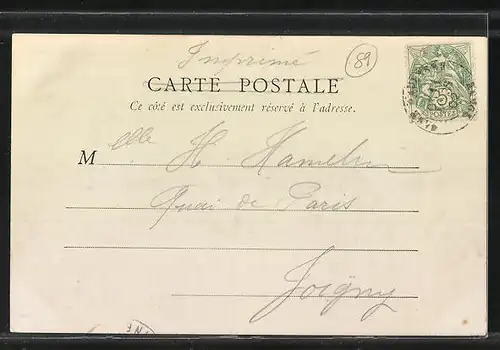 Imprimé
89
CARTE POSTALE
Ce côté est exclusivement réservé à l'adresse.
5
POSTES
Melle H. Hamelin
Quai de Paris
Joigny